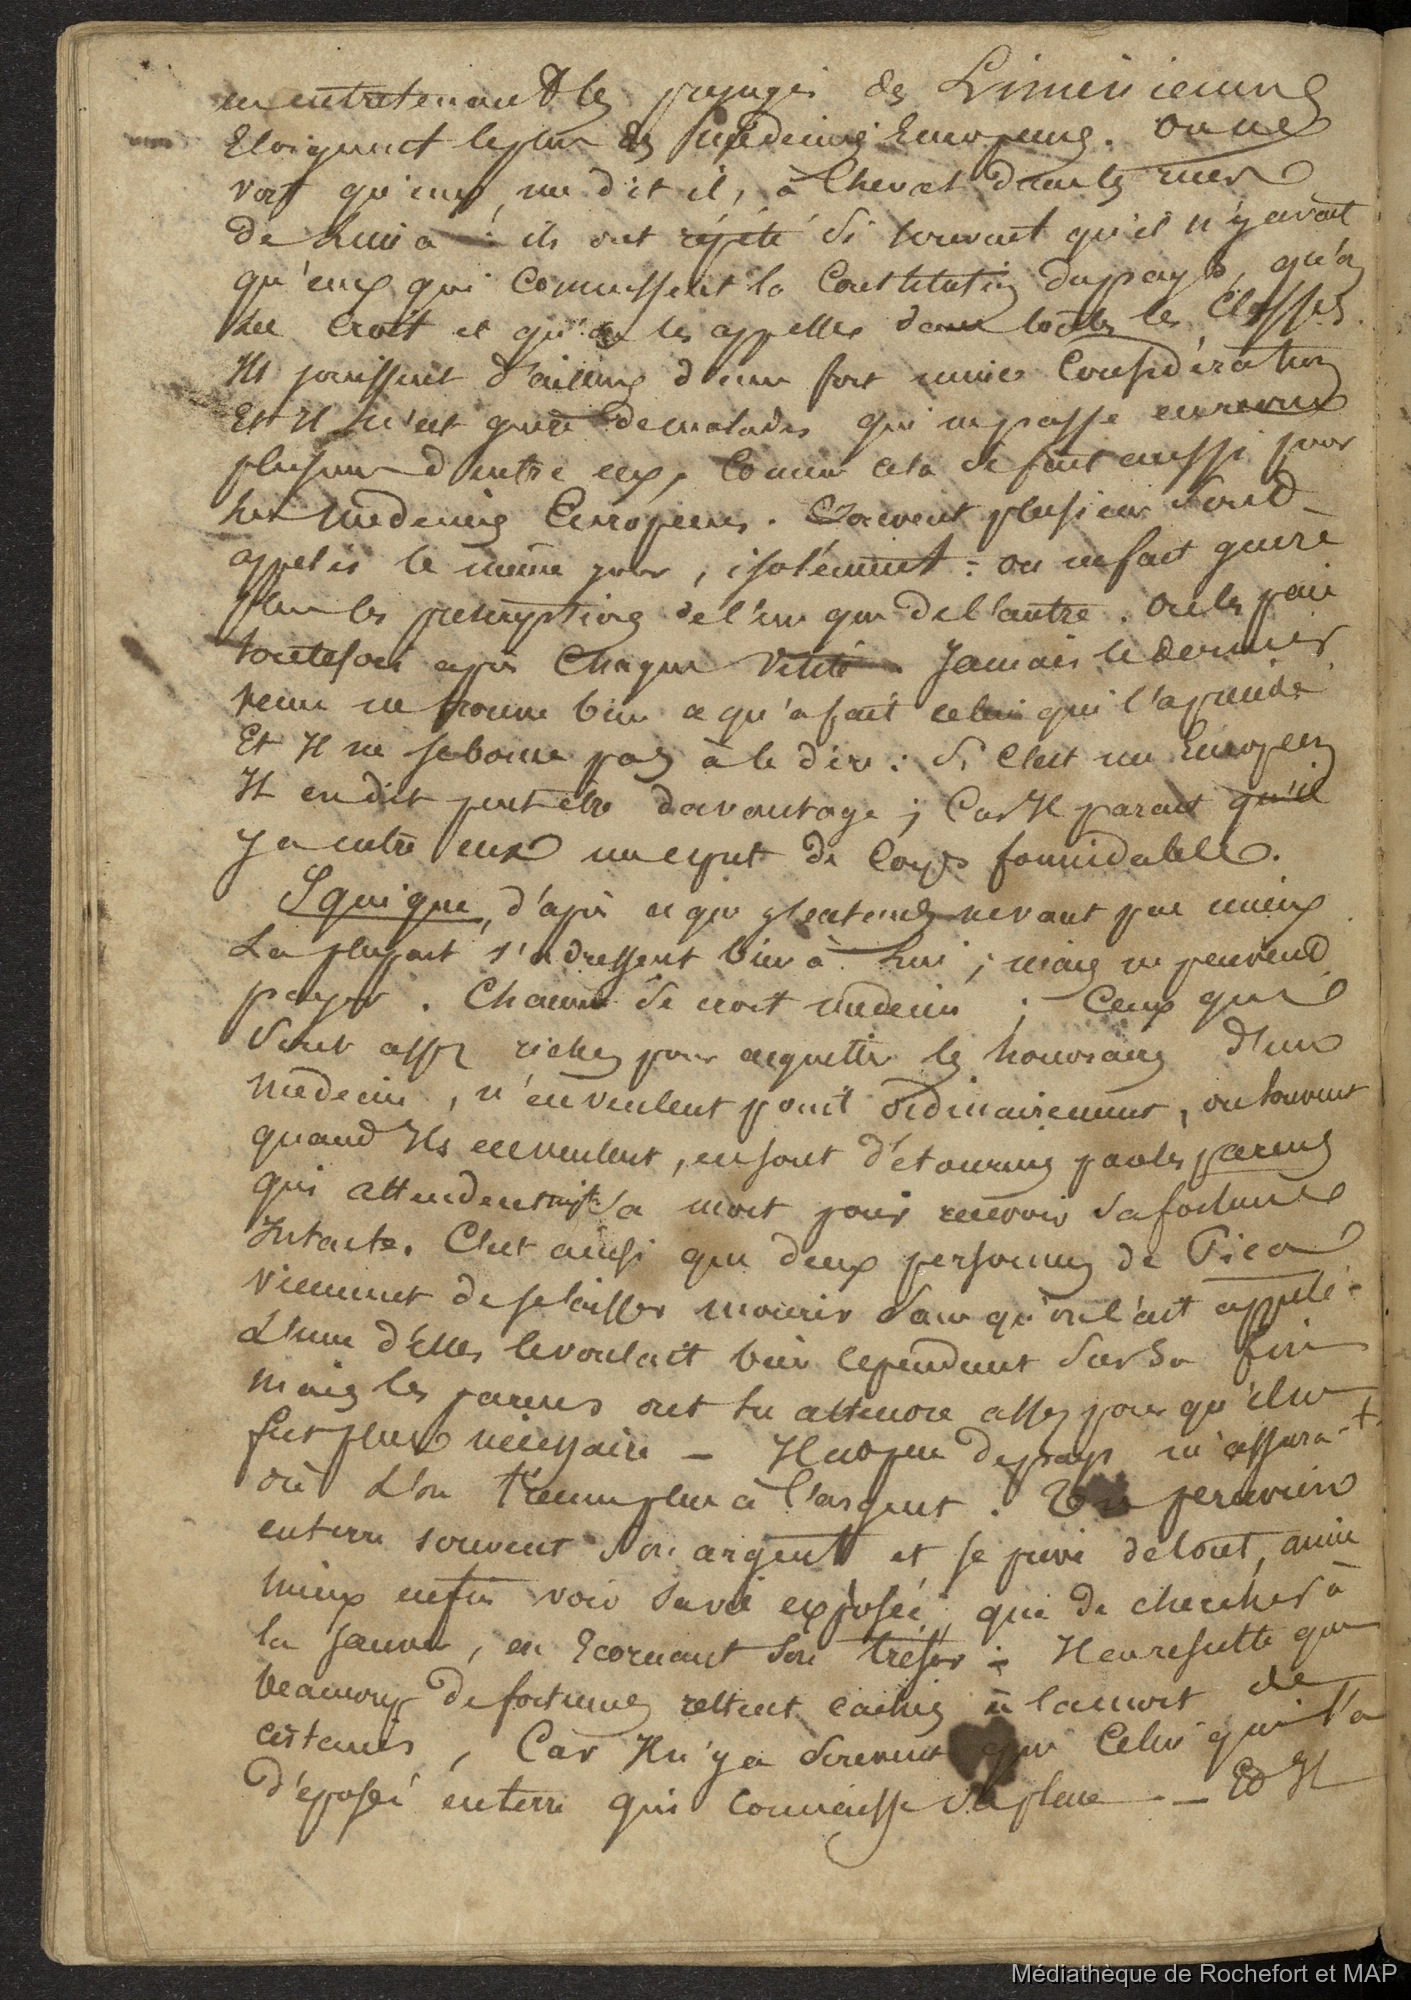 en entretenant les préjugés des Liméniennes
Eloignent le plus les Médecins Européens. On ne
voit qu'eux, me dit il, à Cheval dans les rues
de Lima : ils ont répété si souvent qu'il n'y avait
qu'eux qui Connussent la Constitution du pays, qu'on
les Croit et qu'on les appelle dans toutes les Classes.
Ils jouissent d'ailleurs d'une fort mince Considération
Et Il n'est guère de malades qui ne passe en revue
plusieurs d'entre eux, Comme cela se fait aussi pour
les médecins Européens. Souvent plusieurs sont
appelés le même jour, isolément : on ne fait guère
plus les prescriptions de l'un que de l'autre. On les paie
toutefois après Chaque visite. Jamais le dernier
venu ne trouve bien ce qu'a fait celui qui l'a précédé
Et Il ne se borne pas à le dire : si C'est un Européen
Il en dit peut être davantage ; Car Il parait qu'il
y a entre eux un esprit de Corps formidable.
Iquique, d'après ce que j'entends ne vaut pas mieux
La plupart s'adressent bien à lui ; mais ne peuvent
payer. Chacun se croit médecin ; Ceux qui
sont assez riches pour acquitter les honoraires d'un
médecin, n'en veulent point ordinairement, ou souvent
quand Ils en veulent, en sont détournés par les parens
qui attendent sa mort pour recevoir sa fortune
Intacte. C'est ainsi que deux personnes de Pica
viennent de se laisser mourir sans qu'on l'ait appelé.
L'une d'Elles le voulait bien cependant sur sa fin
mais les parens ont su attendre assez pour qu'il ne
fut plus nécessaire — Il est peu de pays m'assura-t-
où L'on tienne plus à l'argent. Un péruvien
enterre souvent son argent et se prive de tout, aime
mieux enfin voir sa vie exposée, que de chercher à
la sauver, en Ecornant son trésor : Il en resulte que
beaucoup de fortunes restent cachées à la mort de
certains, Car Il n'y a souvent que Celui qui l'a
déposé en terre qui connaisse sa place — Et Il
Médiathèque de Rochefort et MAP